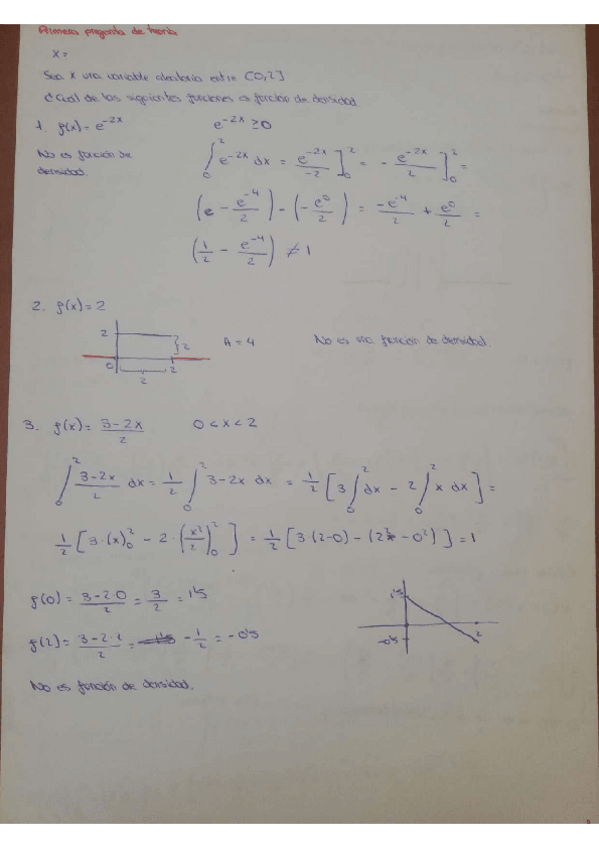 Primera pregunta de teoría
X =
Sea X una variable aleatoria ent in [0,2]
¿Cuál de las siguientes funciones es función de densidad
1. f(x) = e^{-2x}    e^{-2x} ≥ 0
No es función de densidad.
∫_0^2 e^{-2x} dx = e^{-2x}/-2 ]_0^2 = - e^{-2x}/2 ]_0^2 =
(e - e^{-4}/2) - (- e^0/2) = -e^{-4}/2 + e^0/2 =
(1/2 - e^{-4}/2) ≠ 1
2. f(x) = 2
2
2
0
2
2
A = 4    No es una función de densidad.
3. f(x) = 3-2x/2    0 < x < 2
∫_0^2 3-2x/2 dx = 1/2 ∫_0^2 3-2x dx = 1/2 [3 ∫_0^2 dx - 2 ∫_0^2 x dx] =
1/2 [3·(x)_0^2 - 2·(x²/2)_0^2] = 1/2 [3(2-0) - (2² - 0²)] = 1
f(0) = 3-2·0/2 = 3/2 = 1'5
f(2) = 3-2·2/2 = -1/2 = -0'5
1'5
-0'5
2
No es función de densidad.